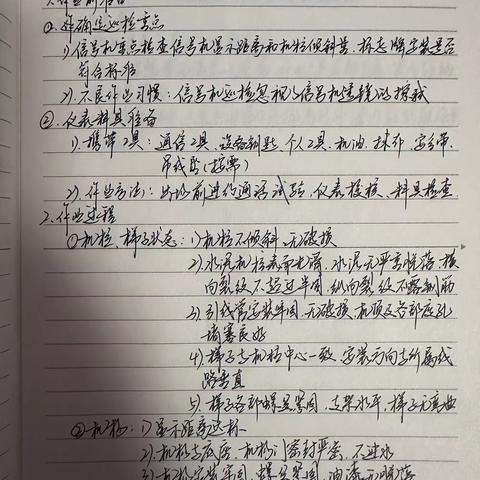 1.作业前准备
①.明确巡检重点
1)信号机重点检查信号机显示距离和机柱倾斜等，标志牌安装是否
符合标准
2).不良作业习惯：信号机巡检忽视信号机透镜
②.仪表料具准备
1).携带工具：通信工具、设备钥匙、个人工具、机油、抹布、安全带、
(按需)
2).作业方法：出场前进行通话试验、仪表校核、料具检查.
2.作业过程
①机柱、梯子状态：1)机柱不倾斜、无破损
2)水泥机柱表面光滑，水泥无严重脱落，横
向裂纹不超过半周，纵向裂纹不露钢筋
3)引线管安装牢固，无破损，机顶及各部应孔
堵塞良好
4).梯子与机柱中心一致，安装方向与所属线
路垂直
5).梯子各部螺丝紧固，支架水平，梯子无弯曲
②机构：1)显示距离达标
2).机构，机构门密封严密，不进水
3).机构安装牢固，螺丝紧固，油漆无脱落